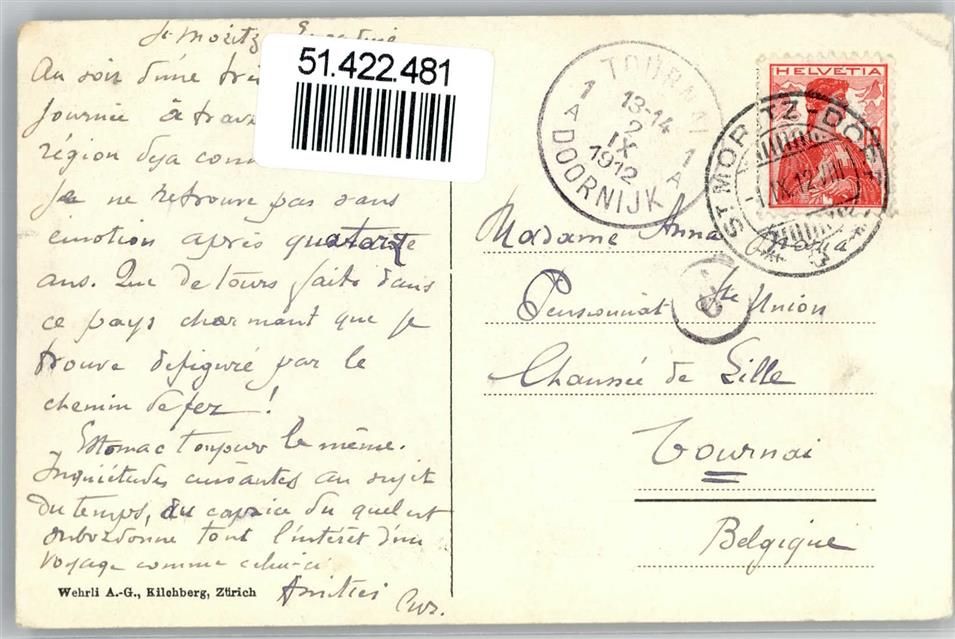 St Moritz
51.422.481
Au soir d'une
journée à
région deja
Je ne retrouve pas sans
émotion après quatorze
ans. Que de tours faits dans
ce pays charmant que je
trouve défiguré par le
chemin de fer !
Estomac toujours le même.
Inquiétudes cuisantes au sujet
du temps, au caprice du quel est
subordonné tout l'intérêt d'un
voyage comme celui-ci
Amitiés
Wehrli A.-G., Kilchberg, Zürich
TOURNAI
1 13-14 1
2
IX
1912
A DOORNIJK A
HELVETIA
ST. MORITZ-DORF
IX.12.VIII
Madame Anna Maria
Pensionnat Ste Union
Chaussée de Lille
Tournai
Belgique